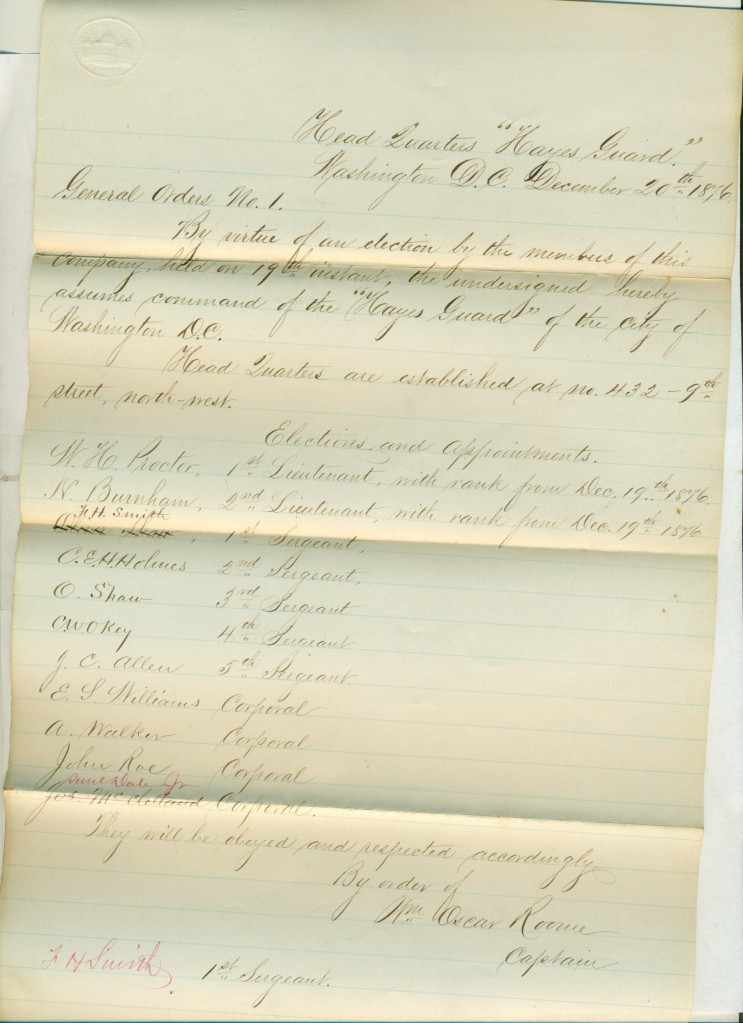 Head Quarters "Hayes Guard."
Washington D.C. December 20th 1876.
General Orders No. 1.
By virtue of an election by the members of this
Company, held on 19th instant, the undersigned hereby
assumes command of the "Hayes Guard" of the city of
Washington D.C.
Head Quarters are established at no. 432 - 9th
street, north-west.
Elections and Appointments.
W. H. Proctor, 1st Lieutenant, with rank from Dec. 19th 1876.
N. Burnham, 2nd Lieutenant, with rank from Dec. 19th 1876.
F. H. Smith
, 1st Sergeant,
C.E.H. Holmes 2nd Sergeant,
O. Shaw 3rd Sergeant
C.W. Okey 4th Sergeant
J. C. Allen 5th Sergeant
E. S. Williams Corporal
A. Walker Corporal
John Roe Corporal
Jr
Jos. McClelland, Corporal.
They will be obeyed and respected accordingly
By order of
Wm Oscar Roome
Captain
F H Smith, 1st Sergeant.